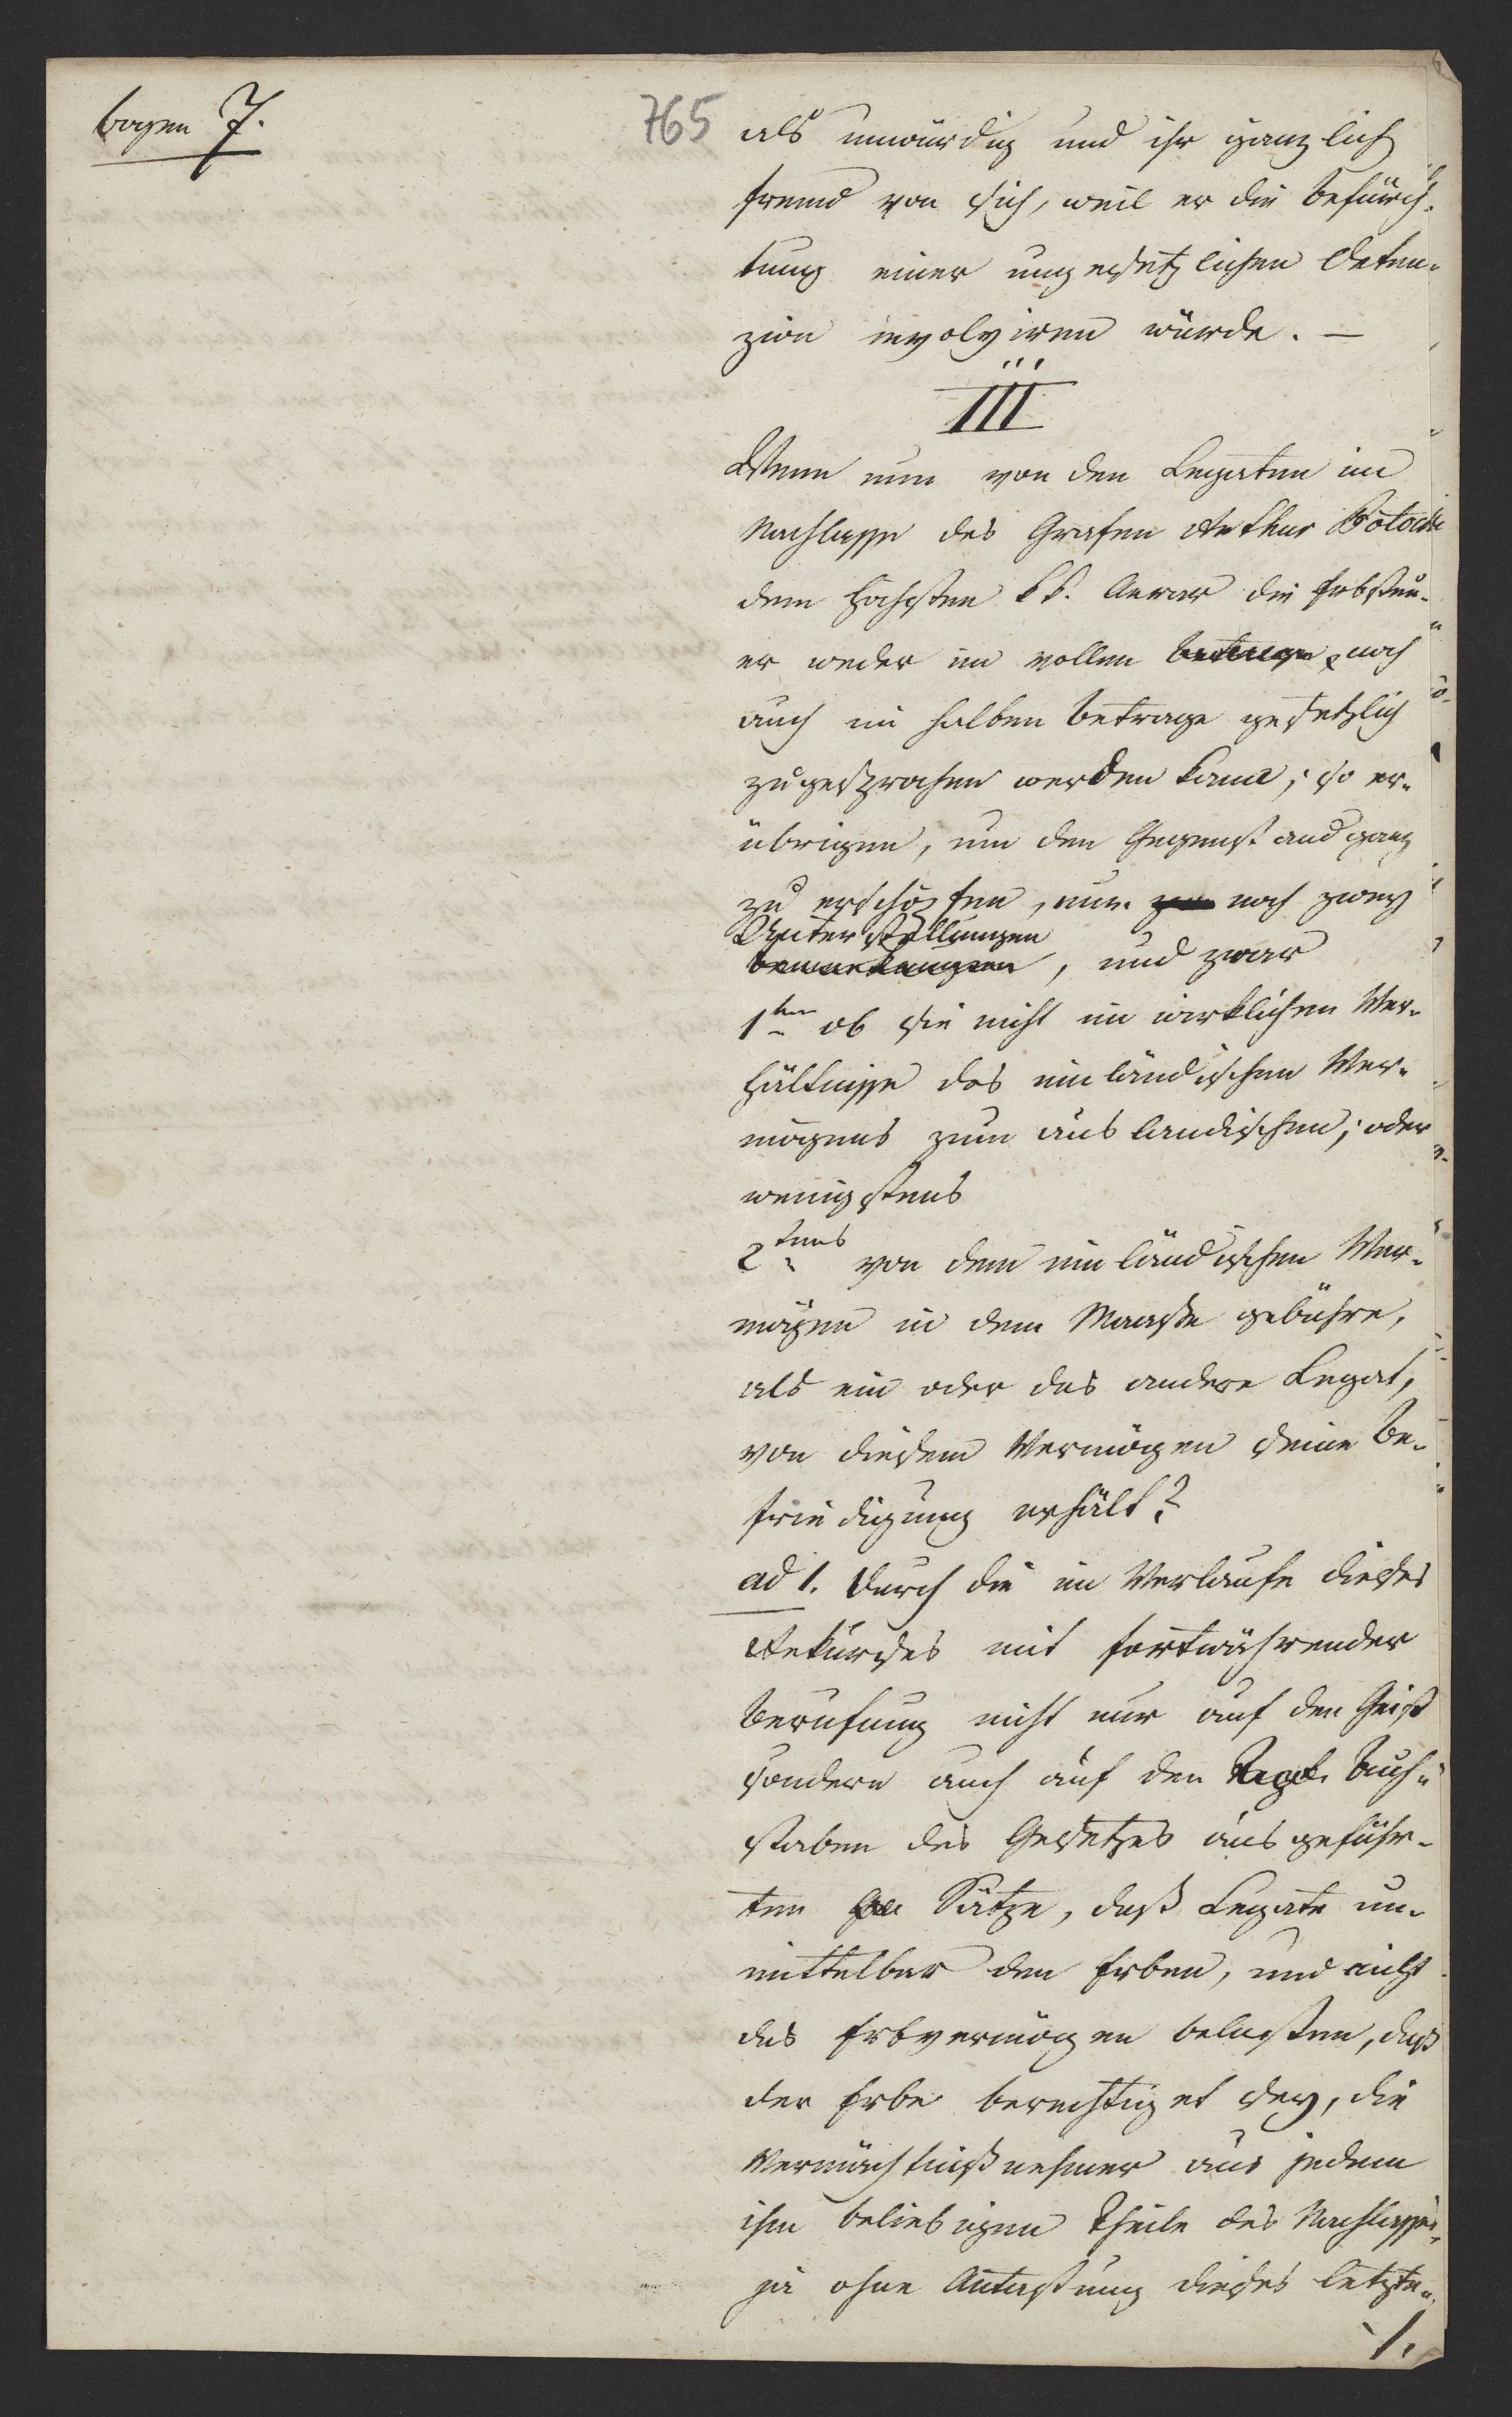 bogen 7.
765
als unwürdig und ihr gänzlich
fremd von sich, weil er die Befürch-
tung einer ungesetzlichen Deten-
zion involviren würde. —
III
Wenn nun von den Legaten im
Nachlasse des Grafen Arthur Potocki
dem höchsten k k. Aerar die Erbsteu-
er weder im vollen Betrage, noch
auch im halben Betrage gesetzlich
zugesprochen werden kann; so er-
übrigen, um den Gegenstand ganz
zu erschöpfen, nur noch zwey
Unterstellungen
bemerkungen, und zwar
1tens ob sie nicht im wirklichen Ver-
hältnisse des einländischen Ver-
mögens zum ausländischen; oder
wenigstens
2tens von dem einländischen Ver-
mögen in dem Maaße gebühre,
als ein oder das andere Legat,
von diesem Vermögen seine Be-
friedigung erhält?
ad 1. Durch die im Verlaufe dieses
Rekurses mit fortwährender
Berufung nicht nur auf den Geist
sondern auch auf den Buch-
staben des Gesetzes ausgeführ-
ten Sätze, daß Legate un-
mittelbar den Erben, und nicht
das Erbvermögen belasten, daß
der Erbe berechtiget sey, die
Vermächtnißnehmer aus jedem
ihm beliebigen Theile des Nachlasses,
ja ohne Antastung dieses letzte-
./.